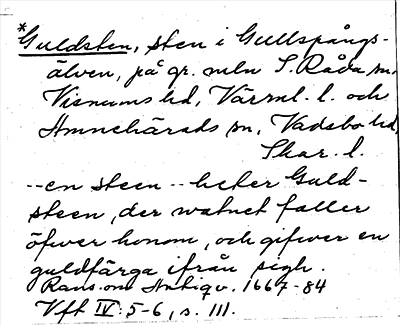 *Guldsten, sten i Gullspångs-
älven, på gr. mln S. Råda sn,
Visnums hd, Värml. l. och
Amnehärads sn, Vadsbo hd,
Skar. l.
--en steen -- heter Guld-
steen, der watnet faller
öfwer honom, och gifwer en
guldfärga ifrån sigh.
Rans. om Antiqv. 1667-84
Vft IV: 5-6, s. 111.